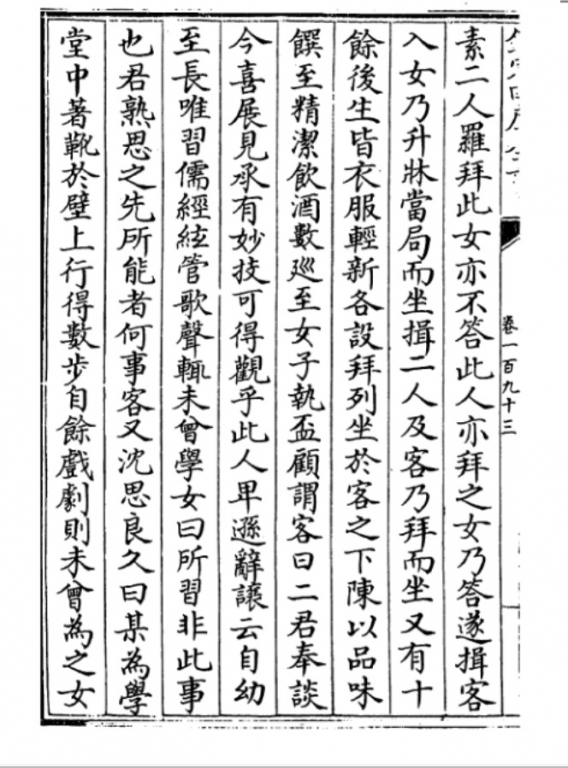 卷一百九十三
素二人羅拜此女亦不答此人亦拜之女乃答遂揖客
入女乃升牀當局而坐揖二人及客乃拜而坐又有十
餘後生皆衣服輕新各設拜列坐於客之下陳以品味
饌至精潔飲酒數廵至女子執盃顧謂客曰二君奉談
今喜展見承有妙技可得觀乎此人卑遜辭讓云自幼
至長唯習儒經絃管歌聲輒未曾學女曰所習非此事
也君熟思之先所能者何事客又沈思良久曰某為學
堂中著靴於壁上行得數步自餘戲劇則未曾為之女